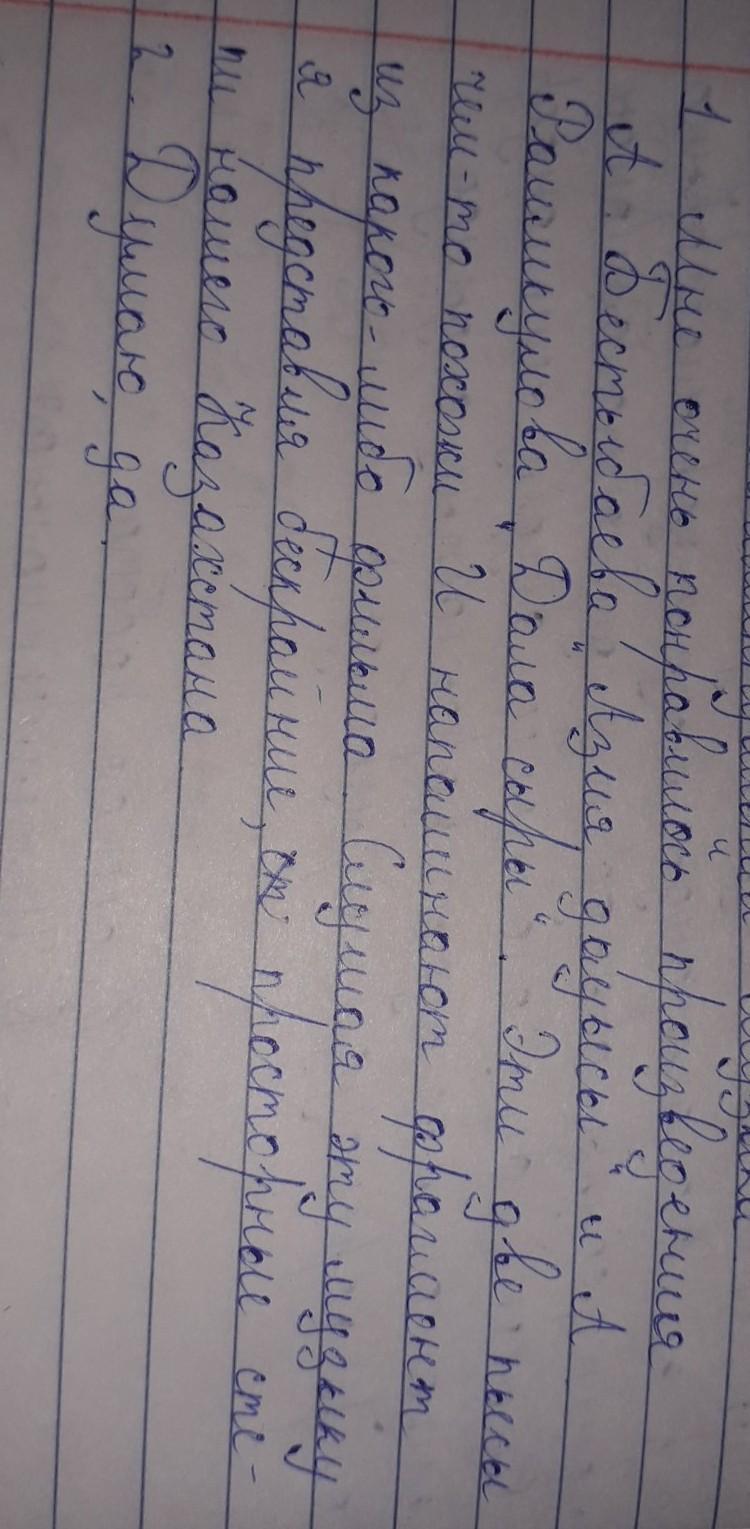 1 Мне очень понравилось произведения
А. Бестыбаева "Азия дауысы" и А
Раимкулова "Дала сыры". Эти две пьесы
чем-то похожи И напоминают фрагмент
из какого-либо фильма. Слушая эту музыку
я представля бескрайние, просторные сте-
пи нашего Казахстана
2. Думаю, да.